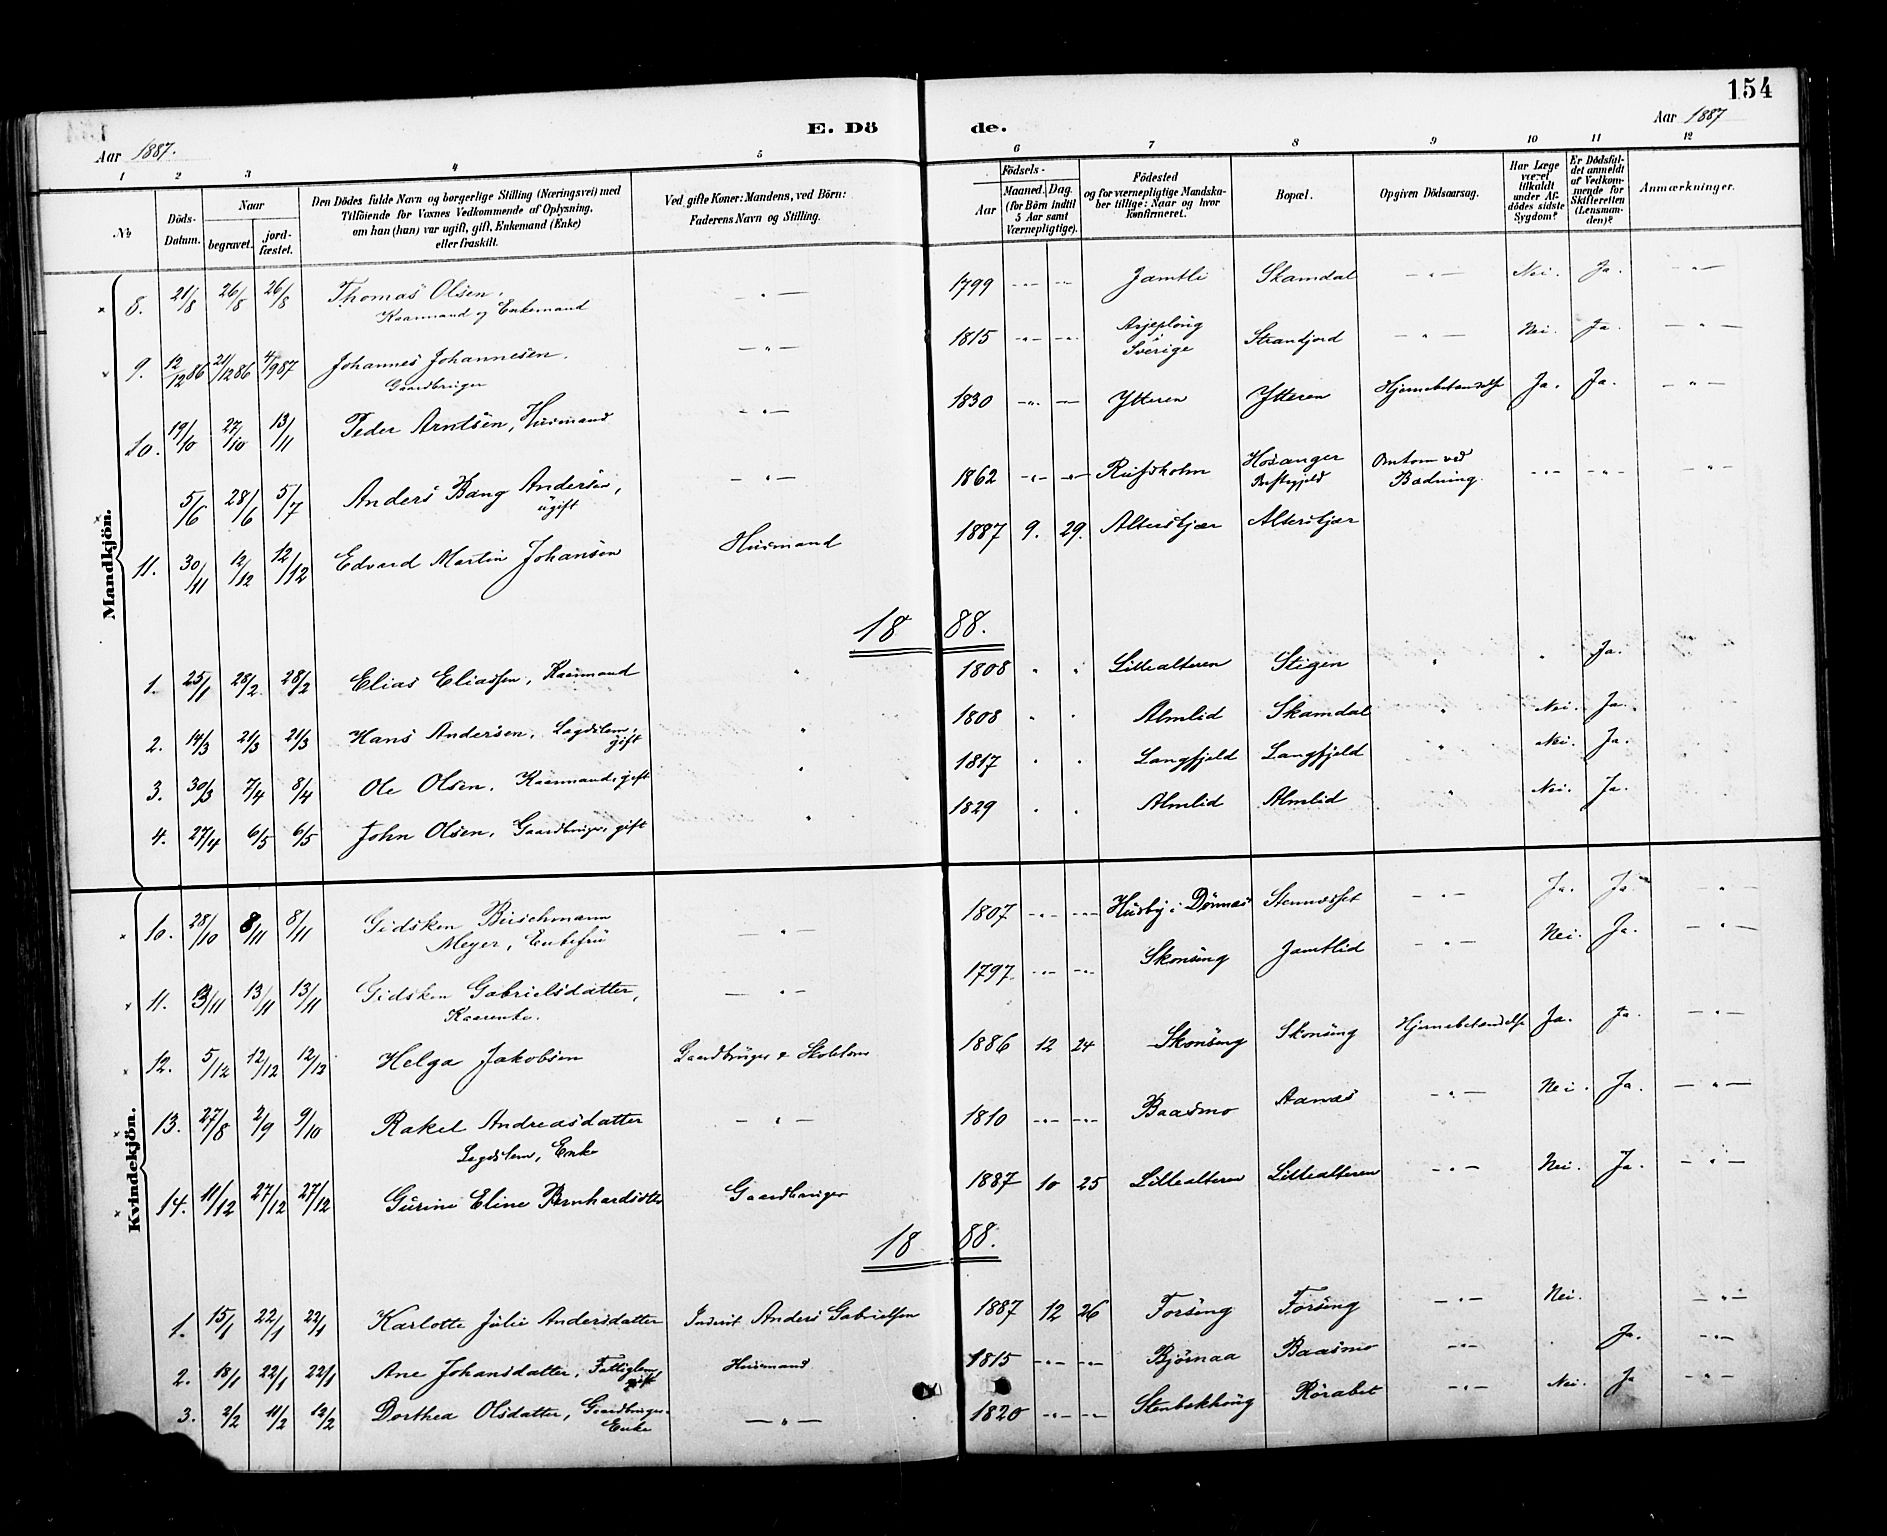 154
Aar 1887.
E. Dö de.
Aar 1887
1 2 3 4 5 6 7 8 9 10 11 12
№
Döds-Datum.
Naar
begravet.
jord-fæstet.
Den Dödes fulde Navn og borgerlige Stilling (Næringsvei) med
Tilföiende for Voxnes Vedkommende af Oplysning,
om han (hun) var ugift, gift, Enkemand (Enke)
eller fraskilt.
Ved gifte Koner: Mandens, ved Börn:
Faderens Navn og Stilling.
Aar
Födsels-
Maaned. Dag.
(for Börn indtil
5 Aar samt
Værnepligtige).
Födested
og for værnepligtige Mandska-
ber tillige: Naar og hvor
konfirmeret.
Bopæl.
Opgiven Dödsaarsag.
Har Læge
været
tilkaldt
under Af-
dödes sidste
Sygdom?
Er Dödsfal-
det anmeldt
af Vedkom-
mende for
Skifteretten
(Lensman-
den)?
Anmærkninger.
Mandkjön.
8. 21/8 26/8 26/8 Thomas Olsen, — " — 1799 -"- -"- Jamtli Skamdal — " — Nei. Ja. — " —
Kaarmand og Enkemand
9. 12/12 86 21/12 86 4/9 87 Johannes Johannesen. — " — 1815 -"- -"- Arjeploug i Sverige Strandjord — " — Nei. Ja. — " —
Gaardbruger
10. 19/10 27/10 13/11 Peder Arntsen, Husmand — " — 1830 -"- — Ytteren Ytteren Hjernebetændelse Ja. Ja. — " —
5/6 28/6 5/7 Anders Bang Andersen, — " — 1862 -"- -"- Hosanger Præstegjeld Omkom ved Badning. -"- -"- — " —
ugift
11. 30/11 12/12 12/12 Edvard Martin Johansen Husmand 1887 9. 29. Altersbjær Altersbjær
18 88.
1. 25/1 28/2 28/2 Elias Eliassen, Kaarmand " 1808 " " Lillealteren Stigen " " Ja.
2. 14/3 21/3 21/3 Hans Andersen, Lægdslem, gift " 1808 " " Almlid Skamdal " Nei. Ja.
3. 30/3 7/4 8/4 Ole Olsen, Kaarmand, gift " 1817 " " Langfjeld Langfjeld " Nei. Ja.
4. 27/4 6/5 6/5 John Olsen, Gaardbruger, gift " 1829 " " Almlid Almlid " Nei. Ja.
Kvindekjön.
10. 28/10 8/11 8/11 Gidsken Buschmann — " — 1807 -"- -"- Husby i Dönnæs Stennesset — " — Ja. Ja. — " —
Meyer, Enkefru
11. 3/11 13/11 13/11 Gidsken Gabrielsdatter, — " — 1797 -"- -"- Skonseng Jamtlid — " — Nei. Ja. — " —
Kaarenke.
12. 5/12 12/12 12/12 Helga Jakobsen Gaardbruger & Skolelærer 1886 12 24 Skonseng Skonseng Hjernebetændelse Ja. Ja. — " —
13. 27/8 2/9 9/10 Rakel Andreasdatter — " — 1810 -"- -"- Baasmo Aanæs — " — Nei. Ja. — " —
Lægdslem, Enke
14. 11/12 27/12 27/12 Gurine Eline Bernhardsdtr Gaardbruger 1887 10 25 Lillealteren Lillealteren — " — Nei. Ja. — " —
18 88.
1. 15/1 22/1 22/1 Karlotte Julie Andersdatter Inderst Anders Gabrielsen 1887 12 26 Forseng Forseng — " — Nei. — " —
2. 18/1 22/1 22/1 Ane Johansdatter, Fattiglem, gift Husmand 1815 -"- -"- Bjørnaa Baasmo — " — " Ja. — " —
3. 2/2 11/2 12/2 Dorthea Olsdatter, Gaardbruger-Enke — " — 1820 -"- -"- Stenbekhoug Rörabet — " — Nei. Ja — " —